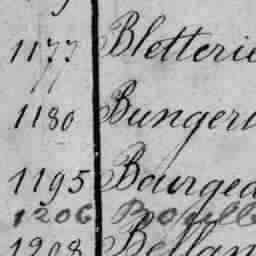 1177 Bletterie
1180 Bungeri
1195 Bourged
1206 Bouille
1208 Bellan